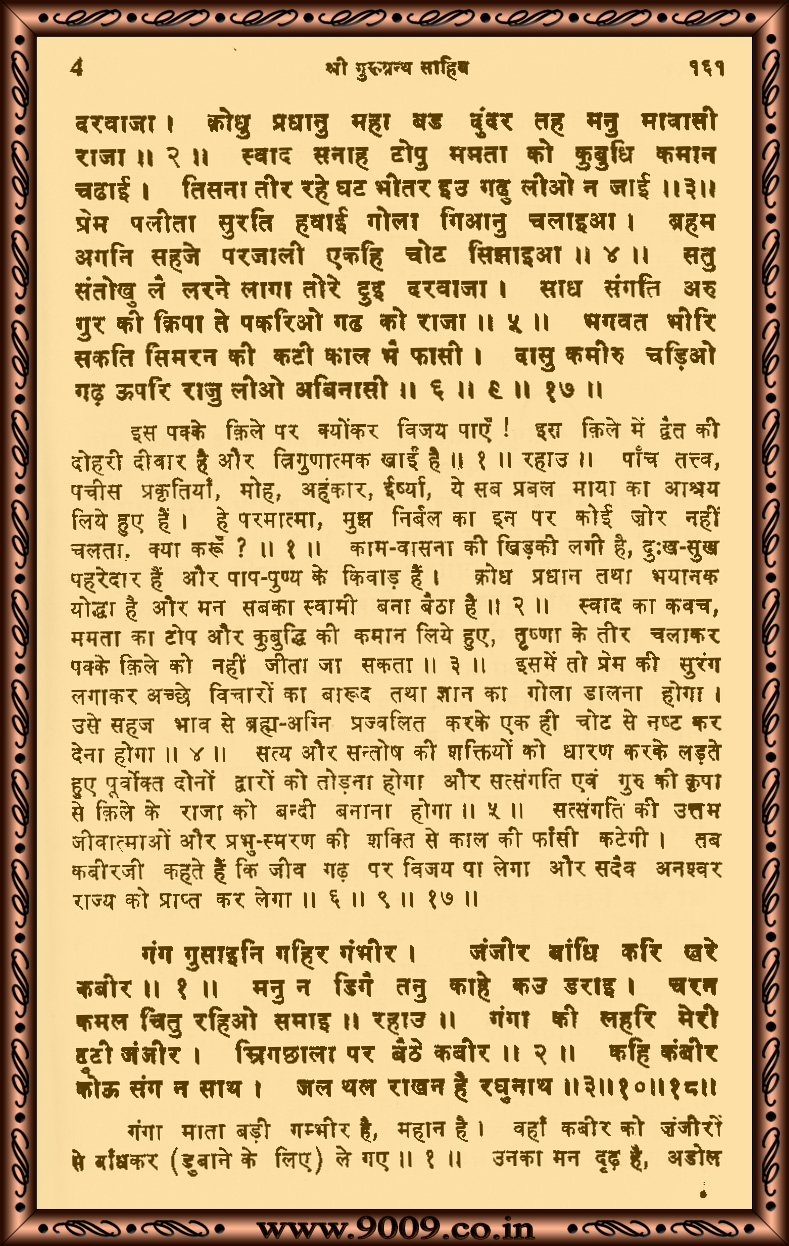 4 श्री गुरूग्रन्थ साहिब १६१
दरवाजा । क्रोधु प्रधानु महा बड दुंदर तह मनु मावासी
राजा ॥ २ ॥ स्वाद सनाह टोपु ममता को कुबुधि कमान
चढाई । तिसना तीर रहे घट भीतर इउ गढु लीओ न जाई ॥३॥
प्रेम पलीता सुरति हवाई गोला गिआनु चलाइआ । ब्रहम
अगनि सहजे परजाली एकहि चोट सिझाइआ ॥ ४ ॥ सतु
संतोखु लै लरने लागा तोरे दुइ दरवाजा । साध संगति अरु
गुर की क्रिपा ते पकरिओ गढ को राजा ॥ ५ ॥ भगवत भीरि
सकति सिमरन की कटी काल भै फासी । दासु कमीरु चड़िओ
गढ़ ऊपरि राजु लीओ अबिनासी ॥ ६ ॥ ९ ॥ १७ ॥
इस पक्के क़िले पर क्योंकर विजय पाएँ ! इस क़िले में द्वैत की
दोहरी दीवार है और त्रिगुणात्मक खाई है ॥ १ ॥ रहाउ ॥ पाँच तत्त्व,
पचीस प्रकृतियाँ, मोह, अहंकार, ईर्ष्या, ये सब प्रबल माया का आश्रय
लिये हुए हैं । हे परमात्मा, मुझ निर्बल का इन पर कोई ज़ोर नहीं
चलता. क्या करूँ ? ॥ १ ॥ काम-वासना की खिड़की लगी है, दुःख-सुख
पहरेदार हैं और पाप-पुण्य के किवाड़ हैं । क्रोध प्रधान तथा भयानक
योद्धा है और मन सबका स्वामी बना बैठा है ॥ २ ॥ स्वाद का कवच,
ममता का टोप और कुबुद्धि की कमान लिये हुए, तृष्णा के तीर चलाकर
पक्के क़िले को नहीं जीता जा सकता ॥ ३ ॥ इसमें तो प्रेम की सुरंग
लगाकर अच्छे विचारों का बारूद तथा ज्ञान का गोला डालना होगा ।
उसे सहज भाव से ब्रह्म-अग्नि प्रज्वलित करके एक ही चोट से नष्ट कर
देना होगा ॥ ४ ॥ सत्य और सन्तोष की शक्तियों को धारण करके लड़ते
हुए पूर्वोक्त दोनों द्वारों को तोड़ना होगा और सत्संगति एवं गुरु की कृपा
से क़िले के राजा को बन्दी बनाना होगा ॥ ५ ॥ सत्संगति की उत्तम
जीवात्माओं और प्रभु-स्मरण की शक्ति से काल की फाँसी कटेगी । तब
कबीरजी कहते हैं कि जीव गढ़ पर विजय पा लेगा और सदैव अनश्वर
राज्य को प्राप्त कर लेगा ॥ ६ ॥ ९ ॥ १७ ॥
गंग गुसाइनि गहिर गंभीर । जंजीर बांधि करि खरे
कबीर ॥ १ ॥ मनु न डिगै तनु काहे कउ डराइ । चरन
कमल चितु रहिओ समाइ ॥ रहाउ ॥ गंगा की लहरि मेरी
टुटी जंजीर । म्रिगछाला पर बैठे कबीर ॥ २ ॥ कहि कंबीर
कोऊ संग न साथ । जल थल राखन है रघुनाथ ॥३॥१०॥१८॥
गंगा माता बड़ी गम्भीर है, महान है । वहाँ कबीर को ज़ंजीरों
से बाँधकर (डुबाने के लिए) ले गए ॥ १ ॥ उनका मन दृढ़ है, अडोल
www.9009.co.in